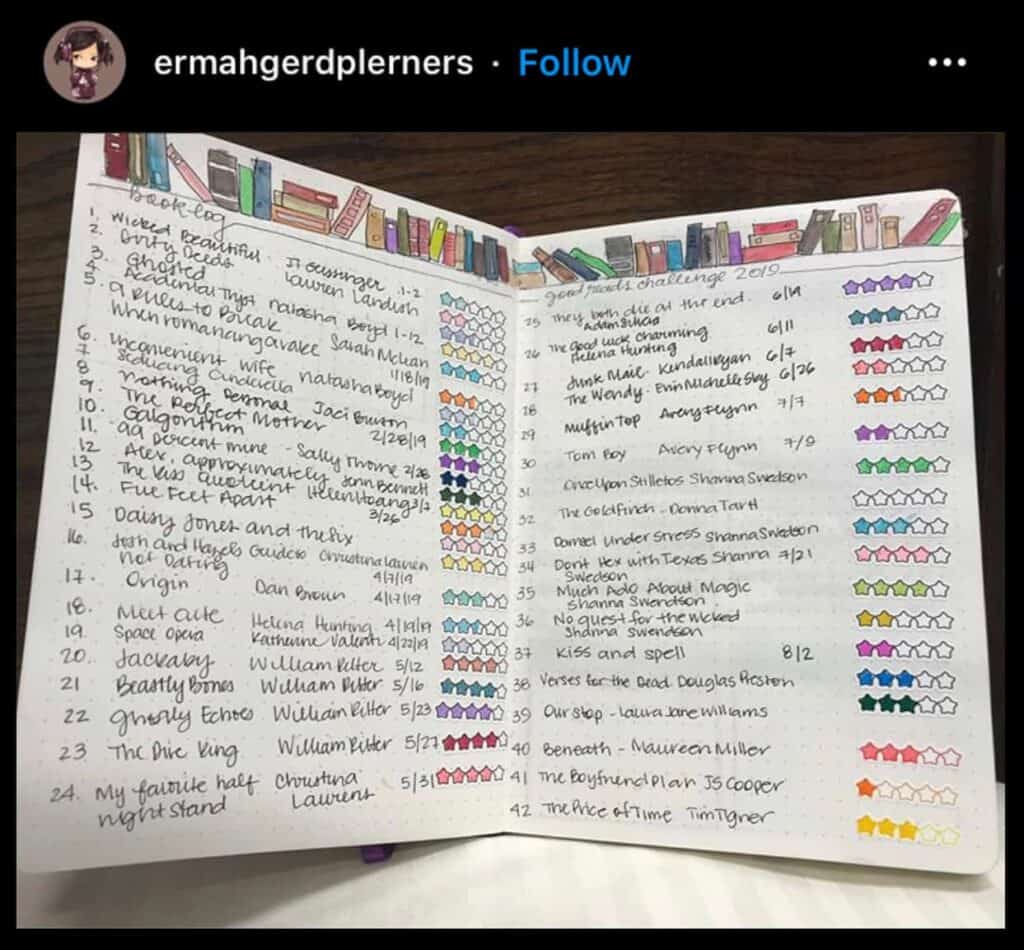 ermahgerdplerners · Follow
Book log
1. Wicked Beautiful · JT Geissinger 1-2
2. Dirty Deeds Lauren Landish
3. Ghosted
4. Accidental Tryst natasha Boyd 1-12
5. 9 Rules to Break
When romancing a rake Sarah Mclean
1/18/19
6. Inconvenient wife natasha Boyd
7 Seducing Cinderella
8 Nothing Personal Jaci Burton
9. The Perfect Mother 2/28/19
10. Galgorithm
11. 99 percent mine - Sally Thorne 2/28
12 Alex, approximately Jenn Bennett
13 The Kiss Quotient Helen Hoang 3/2
14. Five Feet Apart 3/26
15 Daisy Jones and the six
16. Josh and Hazels Guide to Christina Lauren
Not Dating 4/7/19
17. Origin Dan Brown 4/17/19
18. Meet Cute Helena Hunting 4/19/19
19. Space Opera Katherine Valente 4/22/19
20. Jackaby William Ritter 5/12
21 Beastly Bones William Ritter 5/16
22 Ghostly Echoes William Ritter 5/23
23 The Dire King William Ritter 5/27
24. My favorite half Christina 5/31
night stand Laurens
good reads challenge 2019
25 They both die at the end. 6/19
Adam Silvera
26 The good luck charming 6/11
Helena Hunting
27 Junk Male - Kendall Ryan 6/7
28 The Wendy - Erin Michelle Sky 6/26
29 Muffin Top Avery Flynn 7/7
30 Tom Boy Avery Flynn 7/9
31 Once Upon Stilletos Shanna Swedson
32 The Goldfinch - Donna Tartt
33 Damsel Under Stress Shanna Swedson
34 Dont Hex with Texas Shanna 7/21
Swedson
35 Much Ado About Magic
Shanna Swendson
36 No quest for the wicked
Shanna Swendson
37 Kiss and spell 8/2
38 Verses for the Dead Douglas Preston
39 Our Stop - Laura Jane Williams
40 Beneath - Maureen Miller
41 The Boyfriend Plan JS Cooper
42 The Price of Time Tim Tigner